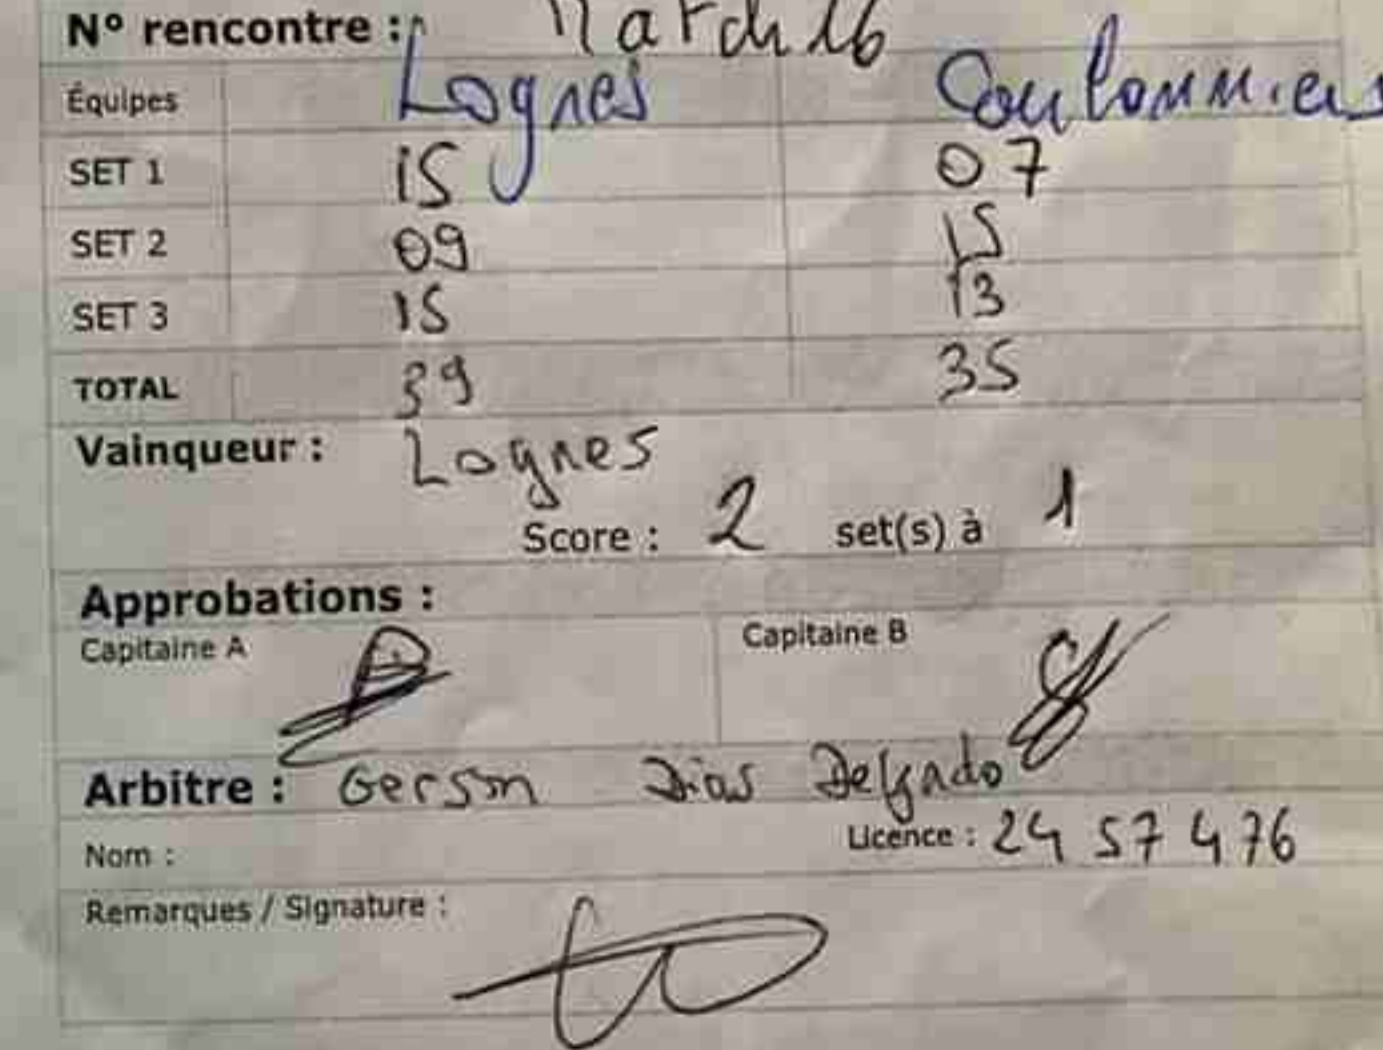 N° rencontre : Match 16
Équipes Lognes Coulommiers
SET 1 15 07
SET 2 09 15
SET 3 15 13
TOTAL 39 35
Vainqueur : Lognes
Score : 2 set(s) à 1
Approbations :
Capitaine A Capitaine B
Arbitre : Gerson Dias Delgado
Nom : Licence : 24 57 476
Remarques / Signature :